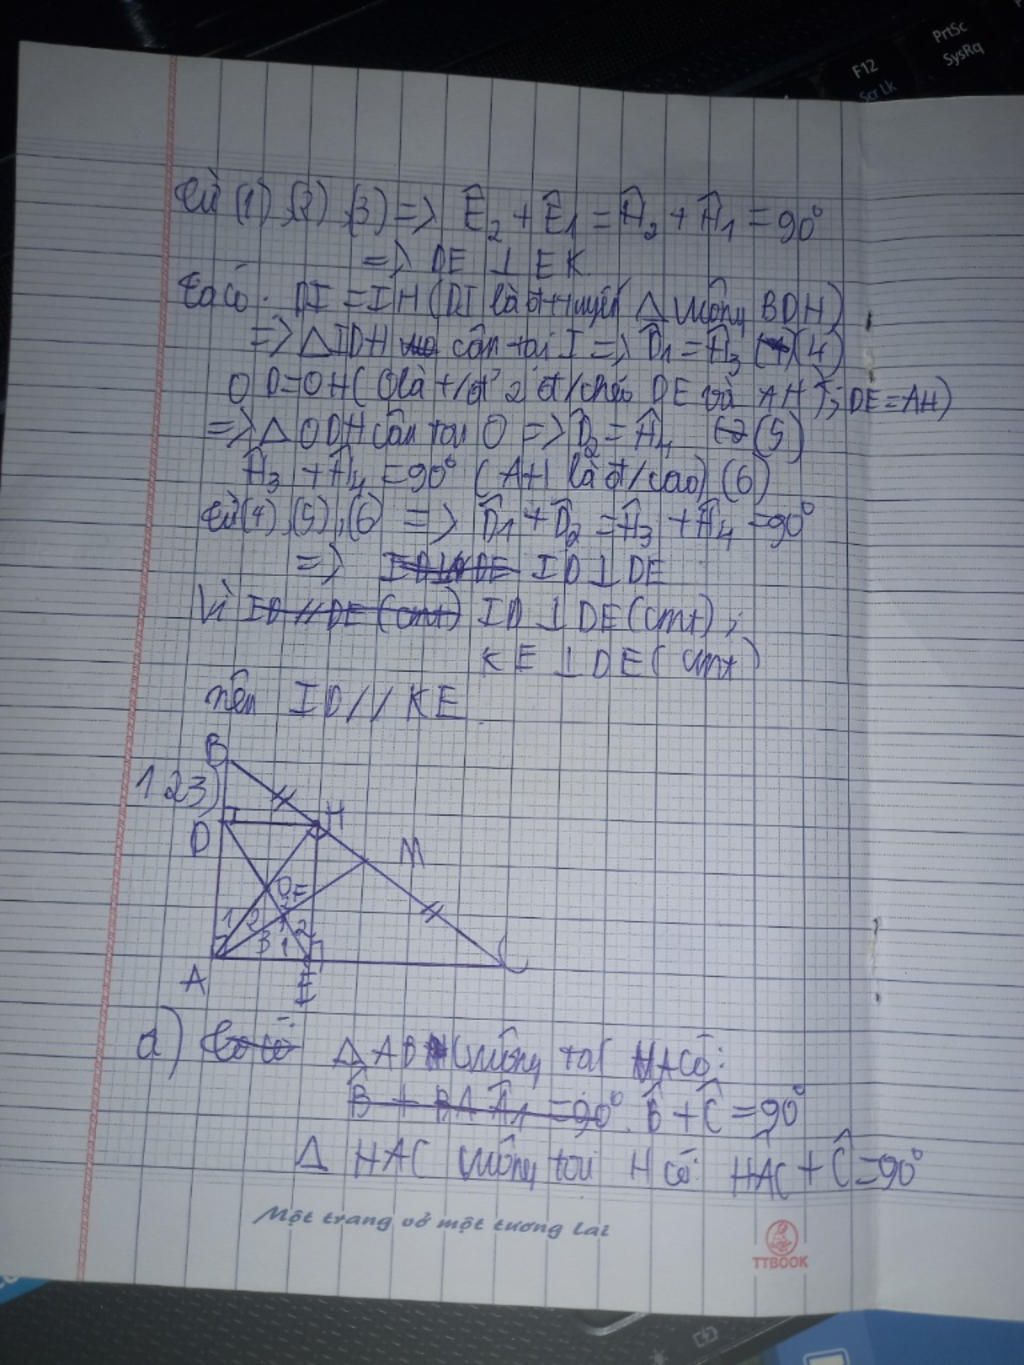 F12
Scr Lk
PrtSc
SysRq
Từ (1), (2), (3) => Ê₂ + Ê₁ = Ĥ₂ + Ĥ₁ = 90°
=> DE ⊥ EK
Ta có: DI = IH (DI là đ/t Δ vuông BDH)
=> Δ IDH cân tại I => D̂₁ = Ĥ₃ (4)
OD = OH (O là t/đ 2 đ/chéo DE và AH, DE = AH)
=> Δ ODH cân tại O => D̂₂ = Ĥ₄ (5)
Ĥ₃ + Ĥ₄ = 90° (AH là đ/cao) (6)
Từ (4), (5), (6) => D̂₁ + D̂₂ = Ĥ₃ + Ĥ₄ = 90°
=> ID ⊥ DE
Vì ID // DE (cmt) ID ⊥ DE (cmt),
KE ⊥ DE (cmt)
nên ID // KE
1.23)
B
D
H
M
O
F
1 2 1 2
3 1
A
E
C
a) Ta có Δ ABC vuông tại A có:
B̂ + Â₁ = 90°. B̂ + Ĉ = 90°
Δ HAC vuông tại H có: HÂC + Ĉ = 90°
Một trang vở một tương lai
TTBOOK